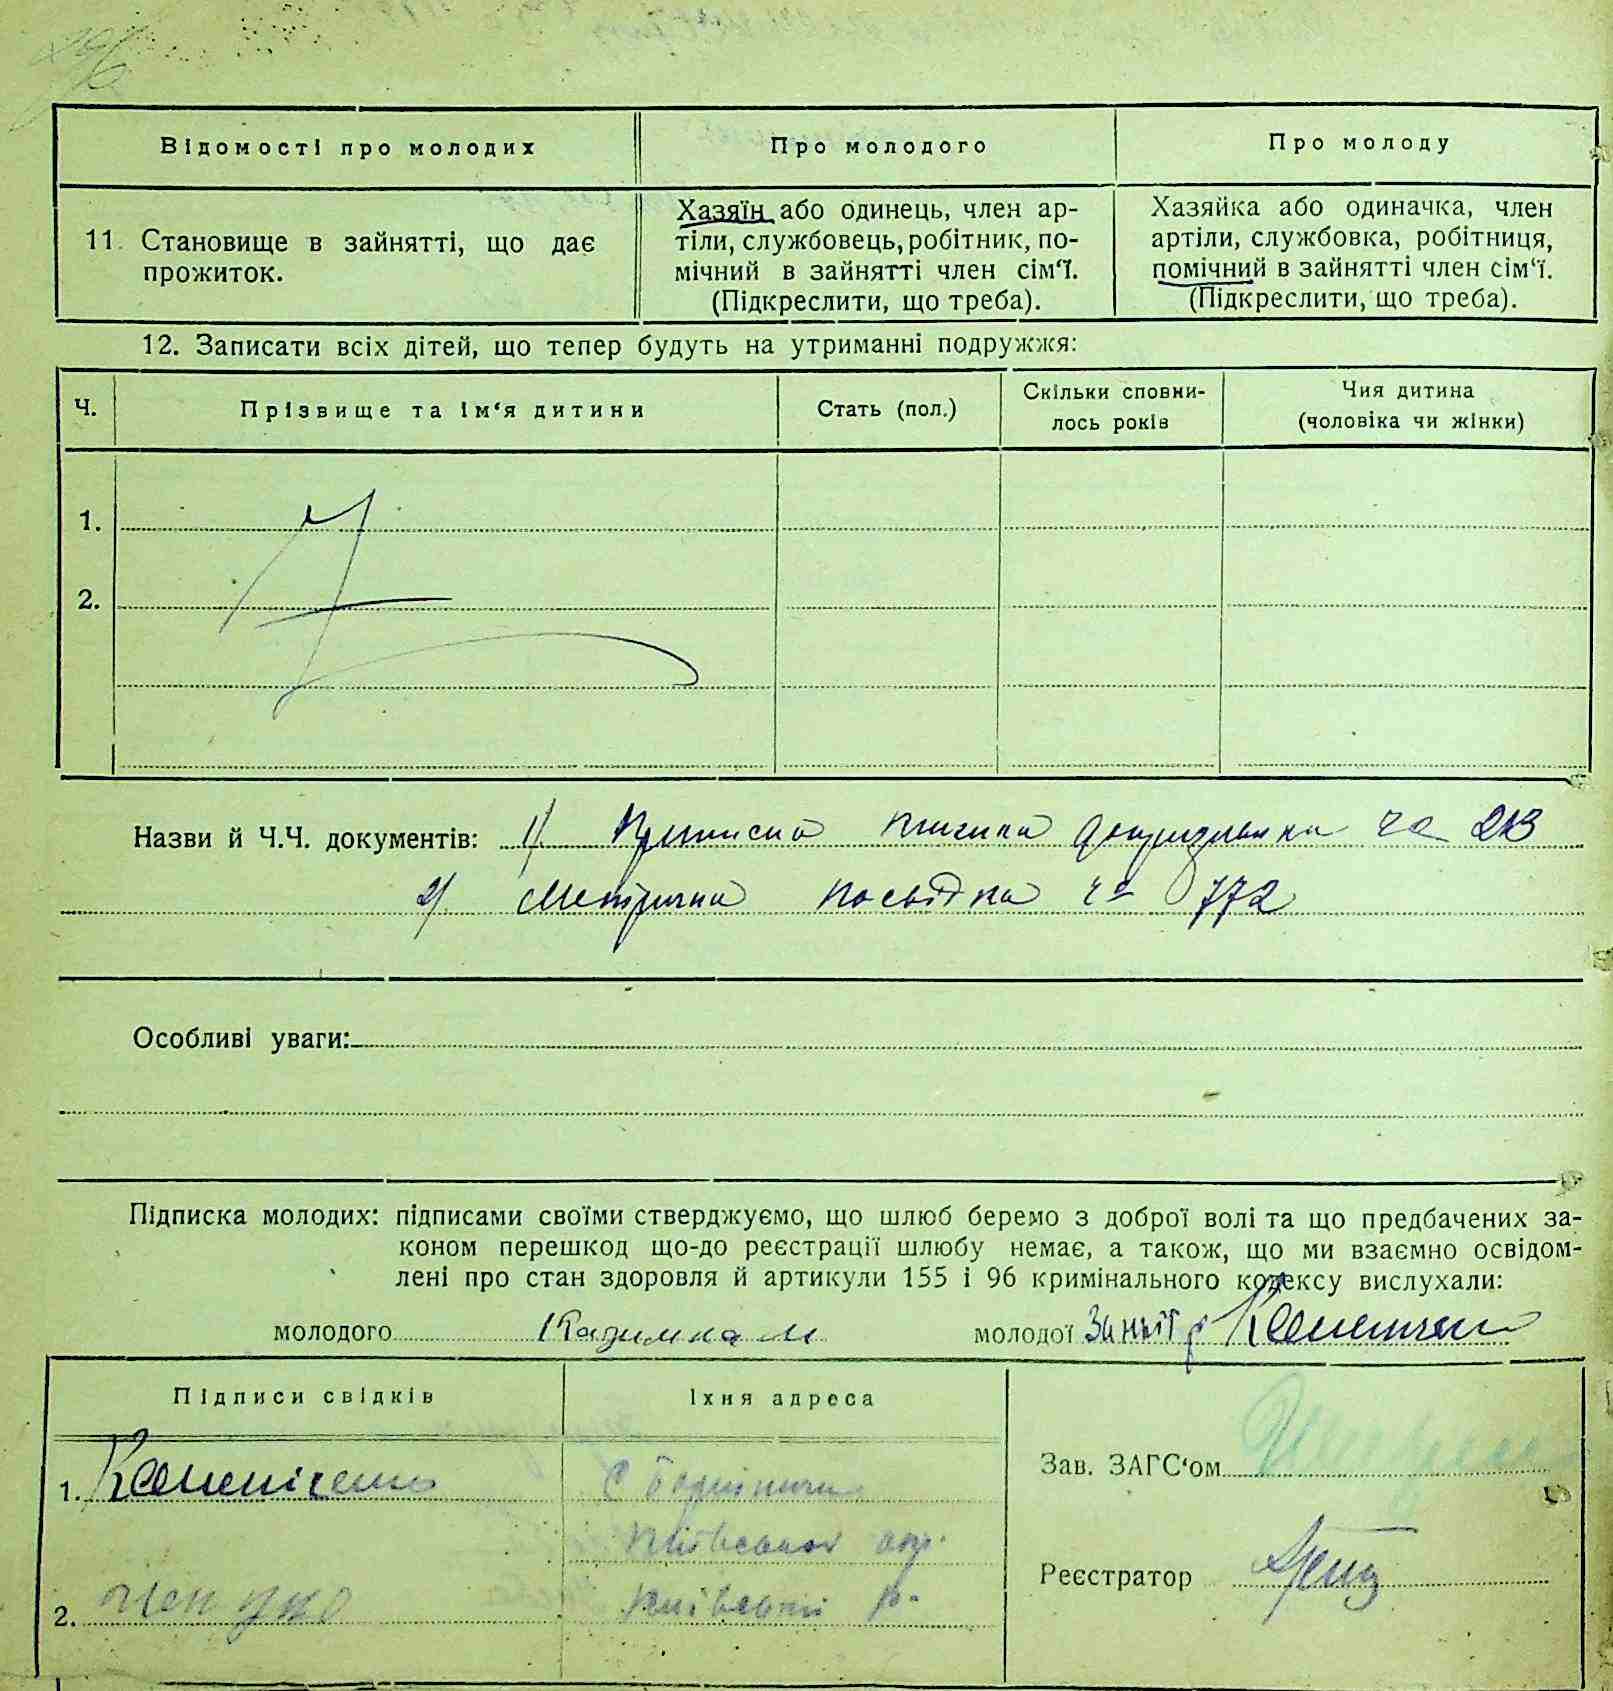 Відомості про молодих
Про молодого
Про молоду
11. Становище в зайнятті, що дає
прожиток.
Хазяїн або одинець, член ар-
тіли, службовець, робітник, по-
мічний в зайнятті член сім'ї.
(Підкреслити, що треба).
Хазяйка або одиначка, член
артіли, службовка, робітниця,
помічний в зайнятті член сім'ї.
(Підкреслити, що треба).
12. Записати всіх дітей, що тепер будуть на утриманні подружжя:
Ч.
Прізвище та ім'я дитини
Стать (пол.)
Скільки сповни-
лось років
Чия дитина
(чоловіка чи жінки)
1.
2.
Назви й Ч.Ч. документів: 1) Приписна книжка допризовника ча 213
2) Метрична посвідка ча 772
Особливі уваги:
Підписка молодих: підписами своїми стверджуємо, що шлюб беремо з доброї волі та що предбачених за-
коном перешкод що-до реєстрації шлюбу немає, а також, що ми взаємно освідом-
лені про стан здоровля й артикули 155 і 96 кримінального кодексу вислухали:
молодого
молодої
Підписи свідків
Їхня адреса
1.
с
Київської окр.
2.
Київський р.
Зав. ЗАГС'ом
Реєстратор